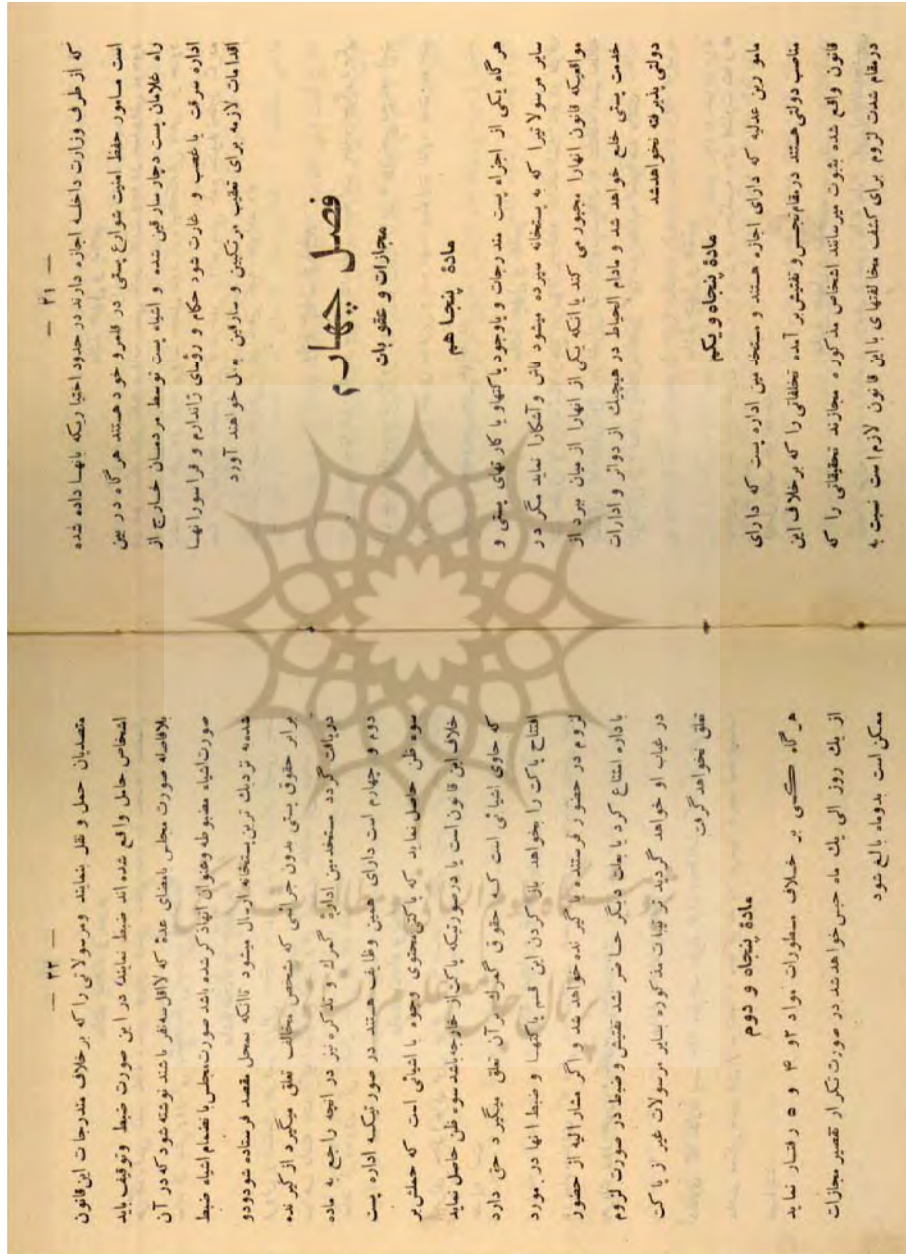 — ۲۱ —
که از طرف وزارت داخله اجازه دارند در حدود اختیا ریکه بانها داده شده
است مامور حفظ امنیت شوارع پستی در قلمرو خود هستند هر گاه در بین
راه غلامان پست دچار سارقین شده و اشیاء پست توسط مردمان خارج از
اداره سرقت یا غصب و غارت شود حکام و رؤسای ژاندارم و قراسورانها
اقدامات لازمه برای تعقیب مرتکبین و سارقین بعمل خواهند آورد
فصل چهارم
مجازات و عقوبات
مادهٔ پنجاهم
هر گاه یکی از اجزاء پست مندرجات و یاوجود پاکتهاو یا کارتهای پستی و
سایر مرسولاتیرا که به پستخانه سپرده میشود فاش و آشکارا نماید مگر در
مواقعیکه قانون انهارا مجبور می کند یا انکه یکی از انهارا از میان ببرد از
خدمت پستی خلع خواهد شد و مادام الحیاط در هیچیک از دوائر و ادارات
دولتی پذیرفته نخواهدشد
مادهٔ پنجاه و یکم
مامو رین عدلیه که دارای اجازه هستند و مستخد مین اداره پست که دارای
مناصب دولتی هستند درمقام تجسس و تفتیش بر آمده تخلفاتی را که برخلاف این
قانون واقع شده بثبوت میرسانند اشخاص مذکوره مجازند تحقیقاتی را که
درمقام شدت لزوم برای کشف مخالفتهای با این قانون لازم است نسبت به
— ۲۲ —
متصدیان حمل و نقل بنمایند ومرسولاتی را که برخلاف مندرجات این قانون
اشخاص حامل واقع شده اند ضبط نمایند، در این صورت ضبط وتوقیف باید
بلافاصله صورت مجلس بامضای عدهٔ که لااقل سه نفر باشند نوشته شود که در آن
صورت اشیاء مضبوطه وعنوان انهاذ کرشده باشد صورت مجلس با نضمام اشیاء ضبط
شده به نزدیک ترین پستخانه ارسال میشود تاانکه بمحل مقصد فرستاده شودودو
برابر حقوق پستی بدون جرائمی که بشخص مخالف تعلق میگیرد از گیرنده
دریافت گردد مستخدمین ادارهٔ گمرک و تذکره نیز در انچه راجع به ماده
دوم و چهارم است دارای همین وظایف هستند در صورتیکه اداره پست
سوء ظن حاصل نماید که پاکتی محتوی وجوه یا اشیائی است که حملش بر
خلاف این قانون است یا درصورتیکه پاکت از خارجه باشد سوء ظن حاصل نماید
که حاوی اشیائی است که حقوق گمرک بر آن تعلق میگیرد حق دارد
افتتاح پاکت را بخواهد باز کردن این قسم پاکتها و ضبط انها در مورد
لزوم در حضور فرستنده یا گیرنده خواهد شد و اگر مشار الیه از حضور
باداره امتناع کرد یا بعلت دیگر حاضر نشد تفتیش و ضبط در صورت لزوم
در غیاب او خواهد گردید ترتیبات مذکوره بسایر مرسولات غیر از پاکت
تعلق نخواهد گرفت
مادهٔ پنجاه و دوم
هر گاه کسی بر خلاف مسطورات مواد ۲ و ۴ و ۵ رفتار نماید
از یک روز الی یک ماه حبس خواهد شد در صورت تکرار تقصیر مجازات
ممکن است بدوماه بالغ شود